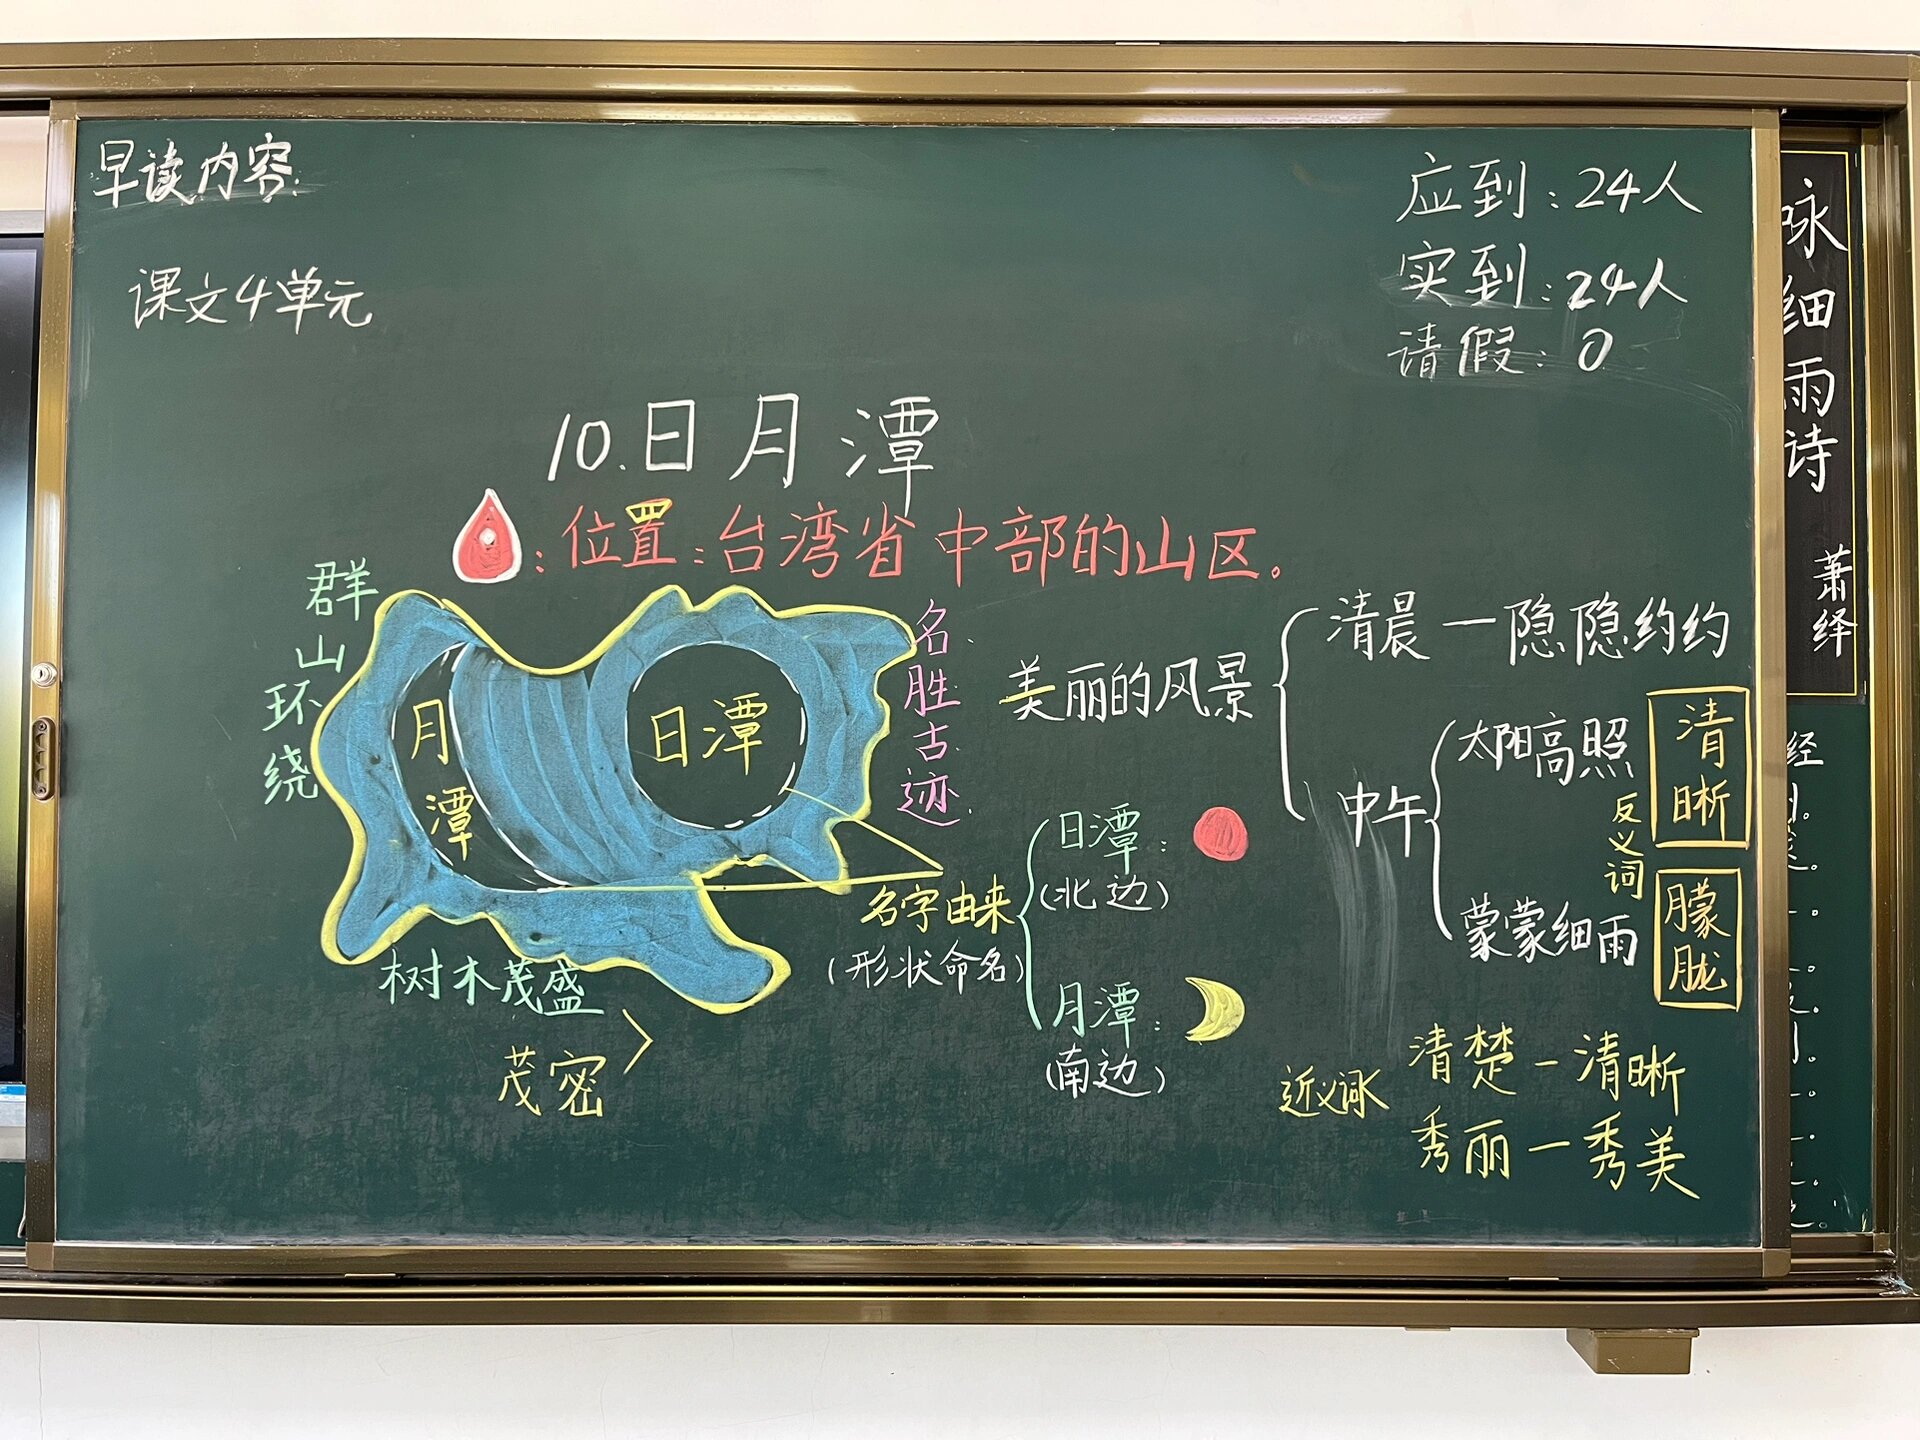 早读内容:
课文4单元
应到:24人
实到:24人
请假:0
10.日月潭
:位置:台湾省中部的山区。
群山环绕
月潭
日潭
名胜古迹
树木茂盛
茂密
名字由来
(形状命名)
日潭:
(北边)
月潭:
(南边)
美丽的风景
清晨—隐隐约约
中午
太阳高照
清晰
反义词
蒙蒙细雨
朦胧
近义词
清楚—清晰
秀丽—秀美
咏细雨诗
萧绎
经